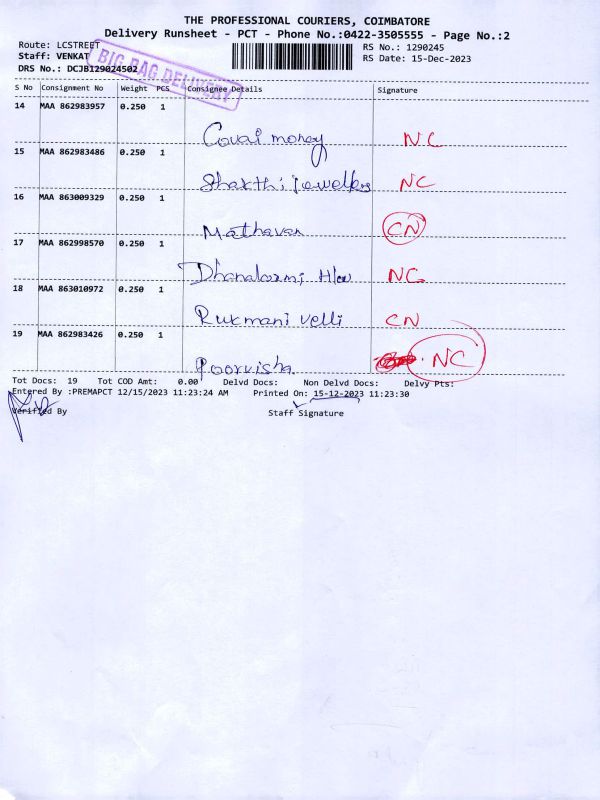 THE PROFESSIONAL COURIERS, COIMBATORE
Delivery Runsheet - PCT - Phone No.:0422-3505555 - Page No.:2
Route: LCSTREET
RS No.: 1290245
Staff: VENKAT
RS Date: 15-Dec-2023
DRS No.: DCJB129024502
BIG BAG DELIVERY
S No Consignment No Weight PCS Consignee Details Signature
14 MAA 862983957 0.250 1
Covai money NC
15 MAA 862983486 0.250 1
Shakthi jewellers NC
16 MAA 863009329 0.250 1
Mathavan CN
17 MAA 862998570 0.250 1
Dhanalaxmi NC
18 MAA 863010972 0.250 1
Rukmani velli CN
19 MAA 862983426 0.250 1
Poorvisha. NC
Tot Docs: 19 Tot COD Amt: 0.00 Delvd Docs: Non Delvd Docs: Delvy Pts:
Entered By :PREMAPCT 12/15/2023 11:23:24 AM Printed On: 15-12-2023 11:23:30
Verified By Staff Signature